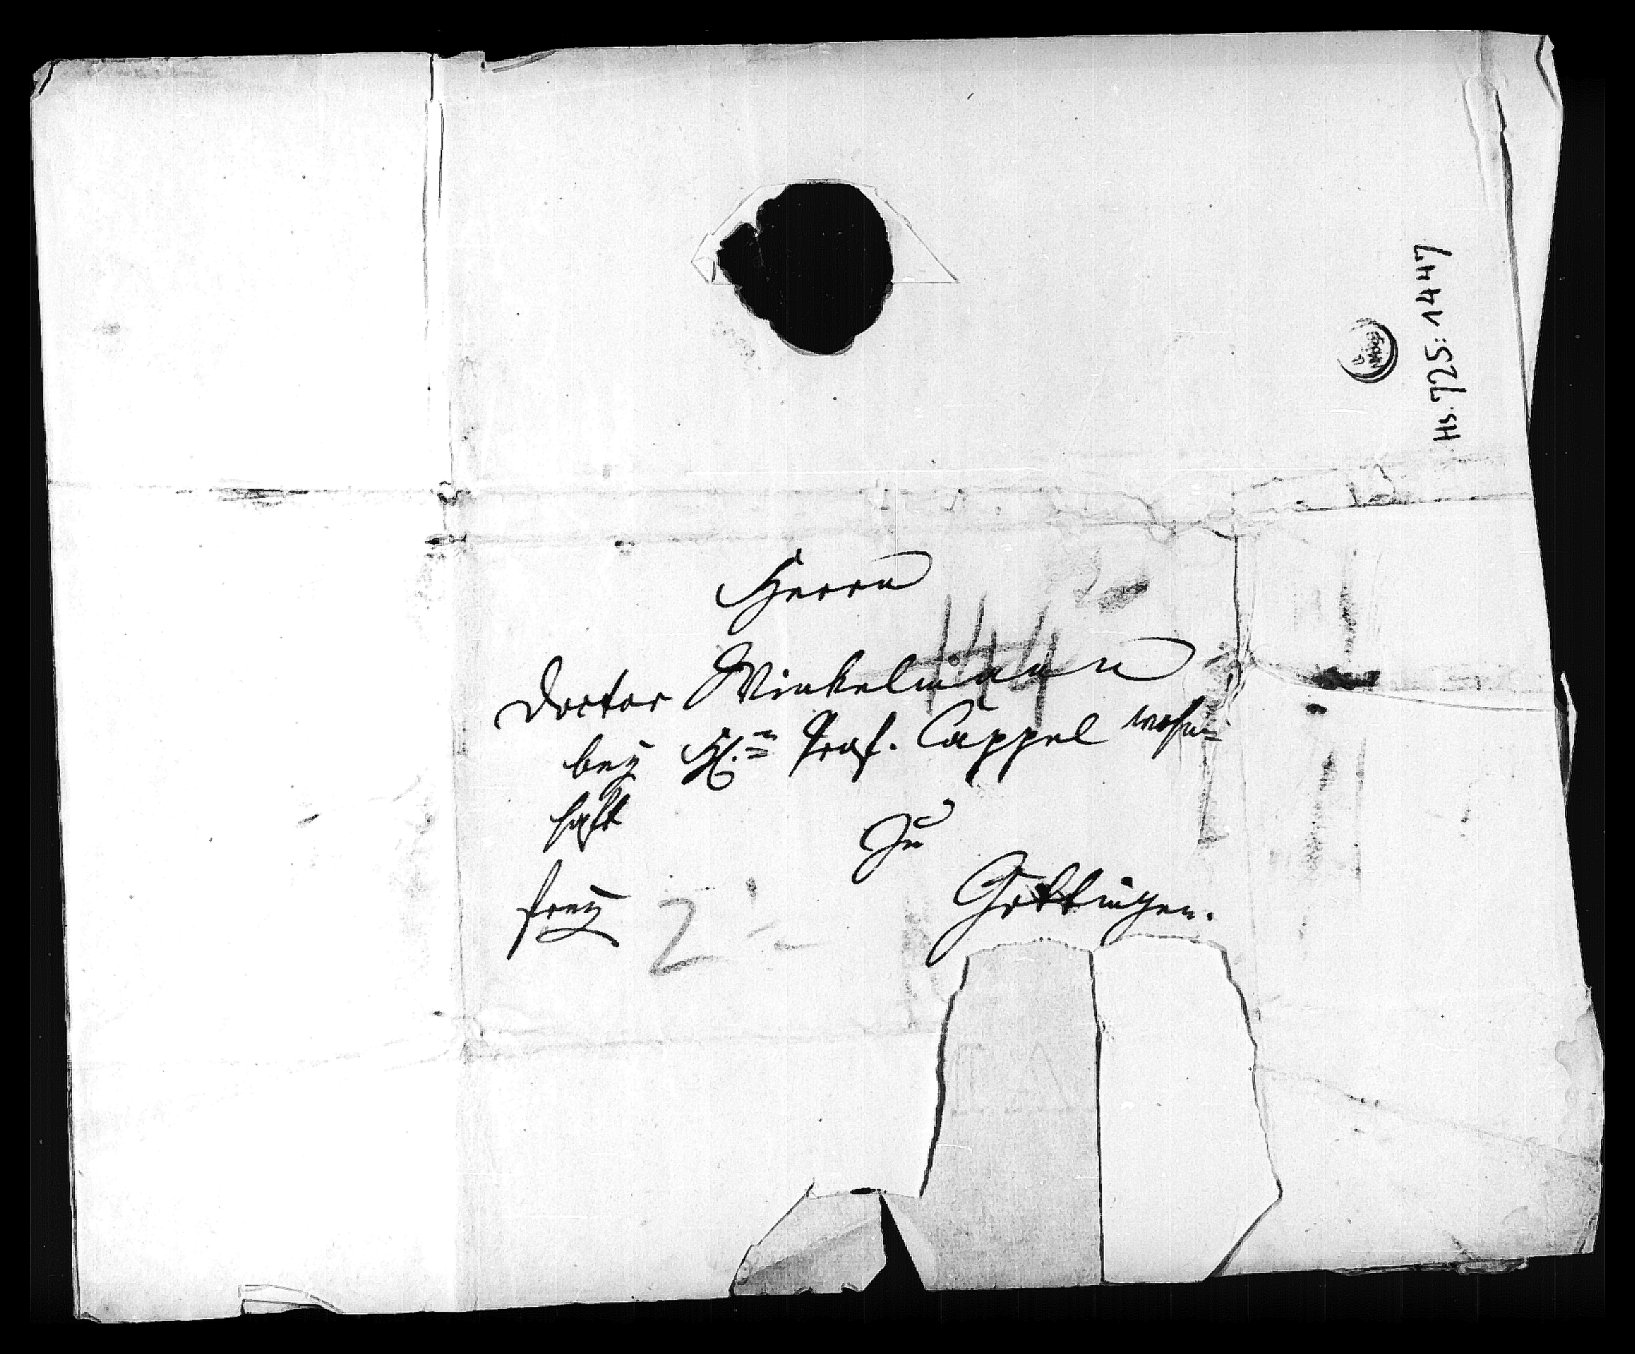 Herrn
Doctor Winkelmann
bey H.rn Prof. Cappel wohn=
haft
zu
frey
Göttingen.
2
44
Hs. 725: 1447